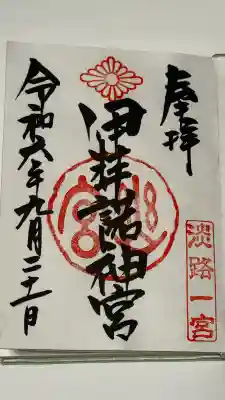 奉拝
淡路一宮
伊弉諾神宮
令和六年九月二十一日